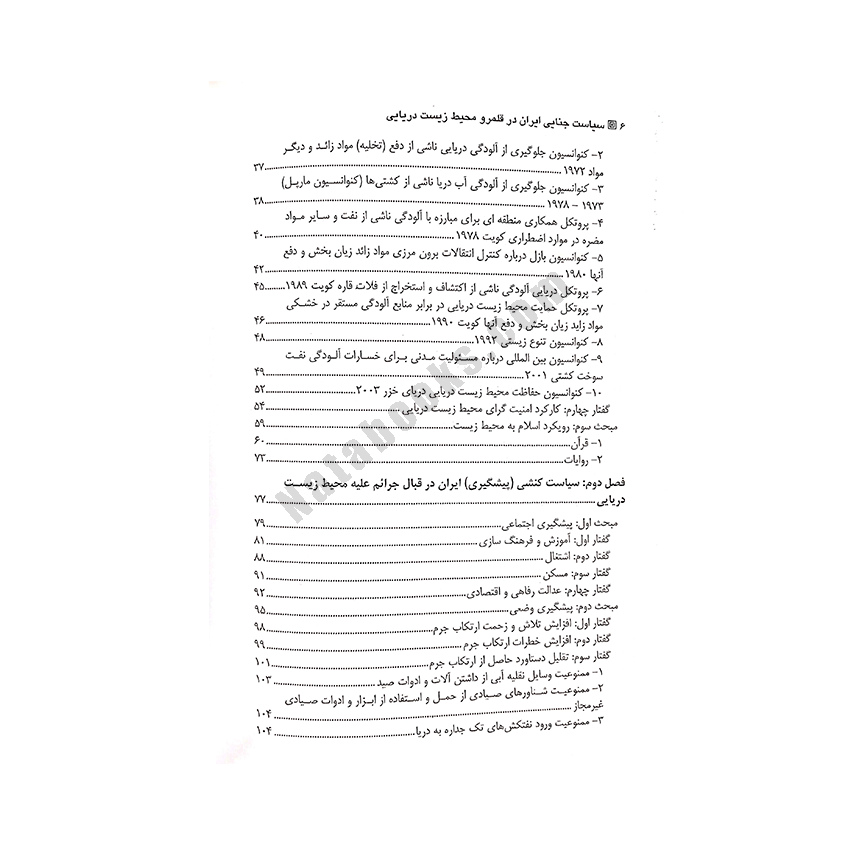 ۶ سیاست جنایی ایران در قلمرو محیط زیست دریایی
۲- کنوانسیون جلوگیری از آلودگی دریایی ناشی از دفع (تخلیه) مواد زائد و دیگر
مواد ۱۹۷۲ ........ ۳۷
۳- کنوانسیون جلوگیری از آلودگی آب دریا ناشی از کشتی‌ها (کنوانسیون مارپل)
۱۹۷۳ – ۱۹۷۸ ........ ۳۸
۴- پروتکل همکاری منطقه ای برای مبارزه با آلودگی ناشی از نفت و سایر مواد
مضره در موارد اضطراری کویت ۱۹۷۸ ........ ۴۰
۵- کنوانسیون بازل درباره کنترل انتقالات برون مرزی مواد زائد زیان بخش و دفع
آنها ۱۹۸۰ ........ ۴۲
۶- پروتکل دریایی آلودگی ناشی از اکتشاف و استخراج از فلات قاره کویت ۱۹۸۹ ........ ۴۵
۷- پروتکل حمایت محیط زیست دریایی در برابر منابع آلودگی مستقر در خشکی
مواد زاید زیان بخش و دفع آنها کویت ۱۹۹۰ ........ ۴۶
۸- کنوانسیون تنوع زیستی ۱۹۹۲ ........ ۴۸
۹- کنوانسیون بین المللی درباره مسئولیت مدنی برای خسارات آلودگی نفت
سوخت کشتی ۲۰۰۱ ........ ۴۹
۱۰- کنوانسیون حفاظت محیط زیست دریایی دریای خزر ۲۰۰۳ ........ ۵۲
گفتار چهارم: کارکرد امنیت گرای محیط زیست دریایی ........ ۵۴
مبحث سوم: رویکرد اسلام به محیط زیست ........ ۵۹
۱- قرآن ........ ۶۰
۲- روایات ........ ۷۳
فصل دوم: سیاست کنشی (پیشگیری) ایران در قبال جرائم علیه محیط زیست
دریایی ........ ۷۷
مبحث اول: پیشگیری اجتماعی ........ ۷۹
گفتار اول: آموزش و فرهنگ سازی ........ ۸۱
گفتار دوم: اشتغال ........ ۸۸
گفتار سوم: مسکن ........ ۹۱
گفتار چهارم: عدالت رفاهی و اقتصادی ........ ۹۲
مبحث دوم: پیشگیری وضعی ........ ۹۵
گفتار اول: افزایش تلاش و زحمت ارتکاب جرم ........ ۹۸
گفتار دوم: افزایش خطرات ارتکاب جرم ........ ۹۹
گفتار سوم: تقلیل دستاورد حاصل از ارتکاب جرم ........ ۱۰۱
۱- ممنوعیت وسایل نقلیه آبی از داشتن آلات و ادوات صید ........ ۱۰۳
۲- ممنوعیت شناورهای صیادی از حمل و استفاده از ابزار و ادوات صیادی
غیرمجاز ........ ۱۰۴
۳- ممنوعیت ورود نفتکش‌های تک جداره به دریا ........ ۱۰۴
Natabooks.com